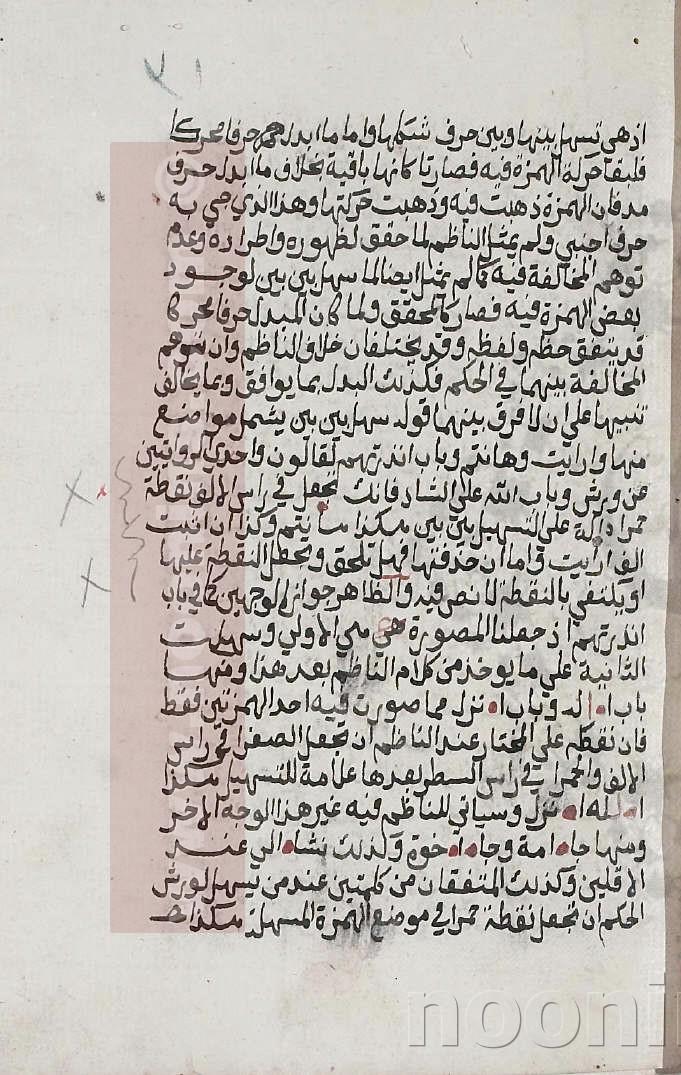 اذ هي تسهل بينها وبين حرف شكلها واما ما ابدل حرفا محركا
فلبقا حركة الهمزة فيه فصارتا كانها باقية بخلاف ما ابدل حرف
مد فان الهمزة ذهبت فيه وذهبت حركتها وهذا الذي جي به
حرف اجنبي ولم يمثل الناظم لما حقق لظهوره واطراده وعدم
توهم المخالفة فيه كما لم يمثل ايضا لما سهل بين بين لوجود
بعض الهمزة فيه فصار كالمحقق ولما كان المبدل حرفا محركا
قد يتفق حكم ولفظ وقد يختلفان خلاف الناظم وان توهم
المخالفة بينهما في الحكم فكذلك البدل بما يوافق وبما يخالف
تنبيها على ان لا فرق بينهما قوله سهل بين بين يشمل مواضع
منها وارايت وهانتم وباب انذرتهم لقالون واحدي الروايتين
عن ورش وباب الله على الشاد فانك تجعل في راس الالف نقطة
حمرا دالة على التسهيل بين بين هكذا هانتم وكذا ان اثبت
الف ارايت واما ان حذفتها فهل تلحق وتجعل النقطة عليها
او يكتفي بالنقطة لا نص فيه والظاهر جواز الوجهين كما في باب
انذرتهم اذ جعلنا المصورة هي الاولي وسهلت
الثانية على ما يوخذ من كلام الناظم بعد هذا ومنها
باب اله وباب انزل مما صورت فيه احد الهمزتين فقط
فان نقطه على المختار عند الناظم ان تجعل الصفرا في راس
الالف والحمرا في راس السطر بعدها علامة للتسهيل هكذا
اله انزل وسياتي للناظم فيه غير هذا الوجه الاخر
ومنها جا امة وجا اخوة وكذلك نشا الي عند
الاقلين وكذلك المتفقان من كلمتين عند من يسهل لورش
الحكم ان تجعل نقطة حمرا في موضع الهمزة المسهلة هكذا
noonin